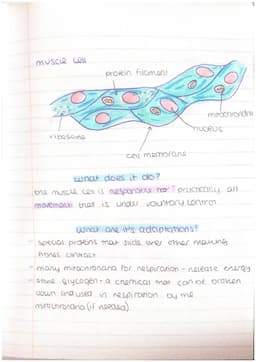 muscle cell
protein filament
mitochondria
nucleus
ribosome
cell membrane
what does it do?
the muscle cell is responsible for practically all
movement that is under voluntary control
what are it's adaptations?
- special proteins that slide over other making
fibres contract
- many mitochondria for respiration - release energy
- store glycogen - a chemical that can be broken
down and used in respiration by the
mitochondria (if needed)